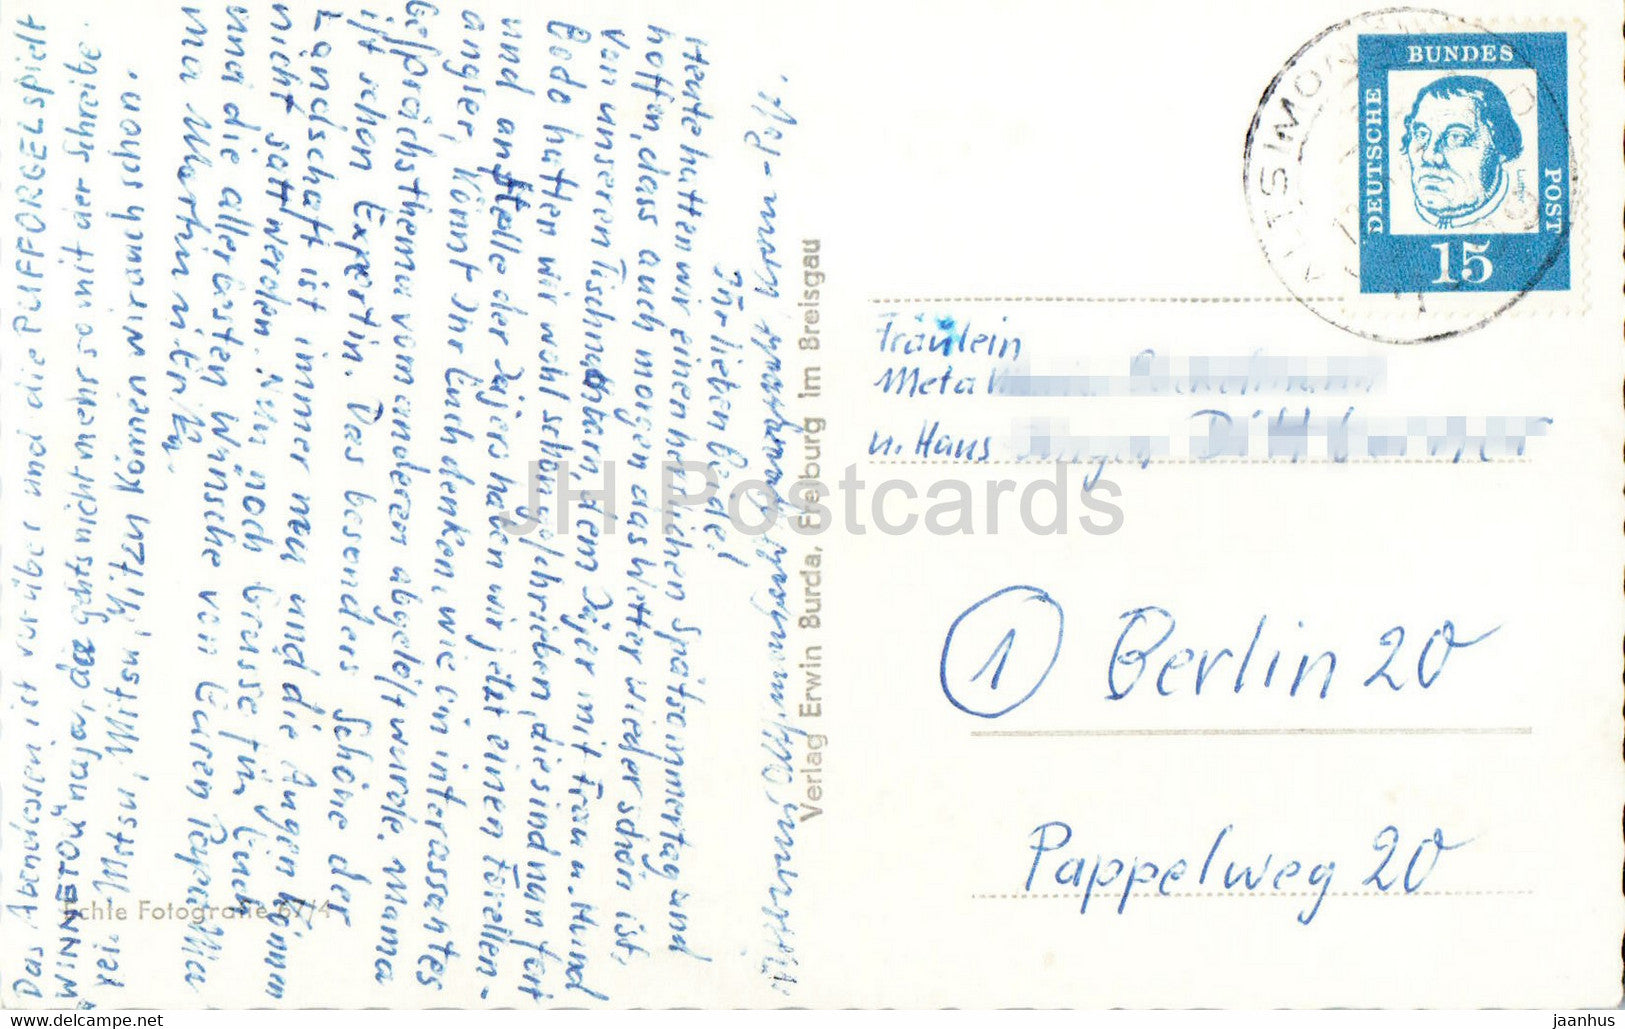 Altsimonswald, Mon-
Ihr lieben beide!
Heute hatten wir einen herrlichen Spätsommertag und
hoffen, dass auch morgen das Wetter wieder schön ist,
Von unseren Tischnachbarn, dem Jäger mit Frau u. Hund
Bodo hatten wir wohl schon geschrieben, die sind nun fort
und anstelle der Jägers haben wir jetzt einen Forellen-
angler, Könnt Ihr Euch denken, wie ein interessantes
Gesprächsthema vom anderen abgelöst wurde. Mama
ist schon Expertin. Das besonders Schöne der
Landschaft ist immer neu und die Augen können
nicht satt werden. Nun noch Grüsse für Euch
und die allerbesten Wünsche von Euren Papa
Das Abendessen ist vorüber und die PUFFORGEL spielt
"WINNETOU" naja, da gehts nicht mehr so mit der Schreibe-
rei. Mitsu, Mitsu, Mitzu können wir auch schon.
Verlag Erwin Burda, Freiburg im Breisgau
Echte Fotografie 67/4
DEUTSCHE
BUNDES
POST
15
Fräulein
Meta
u. Hans
1 Berlin 20
Pappelweg 20
JH Postcards
www.jhpostcards.com
jaanhus